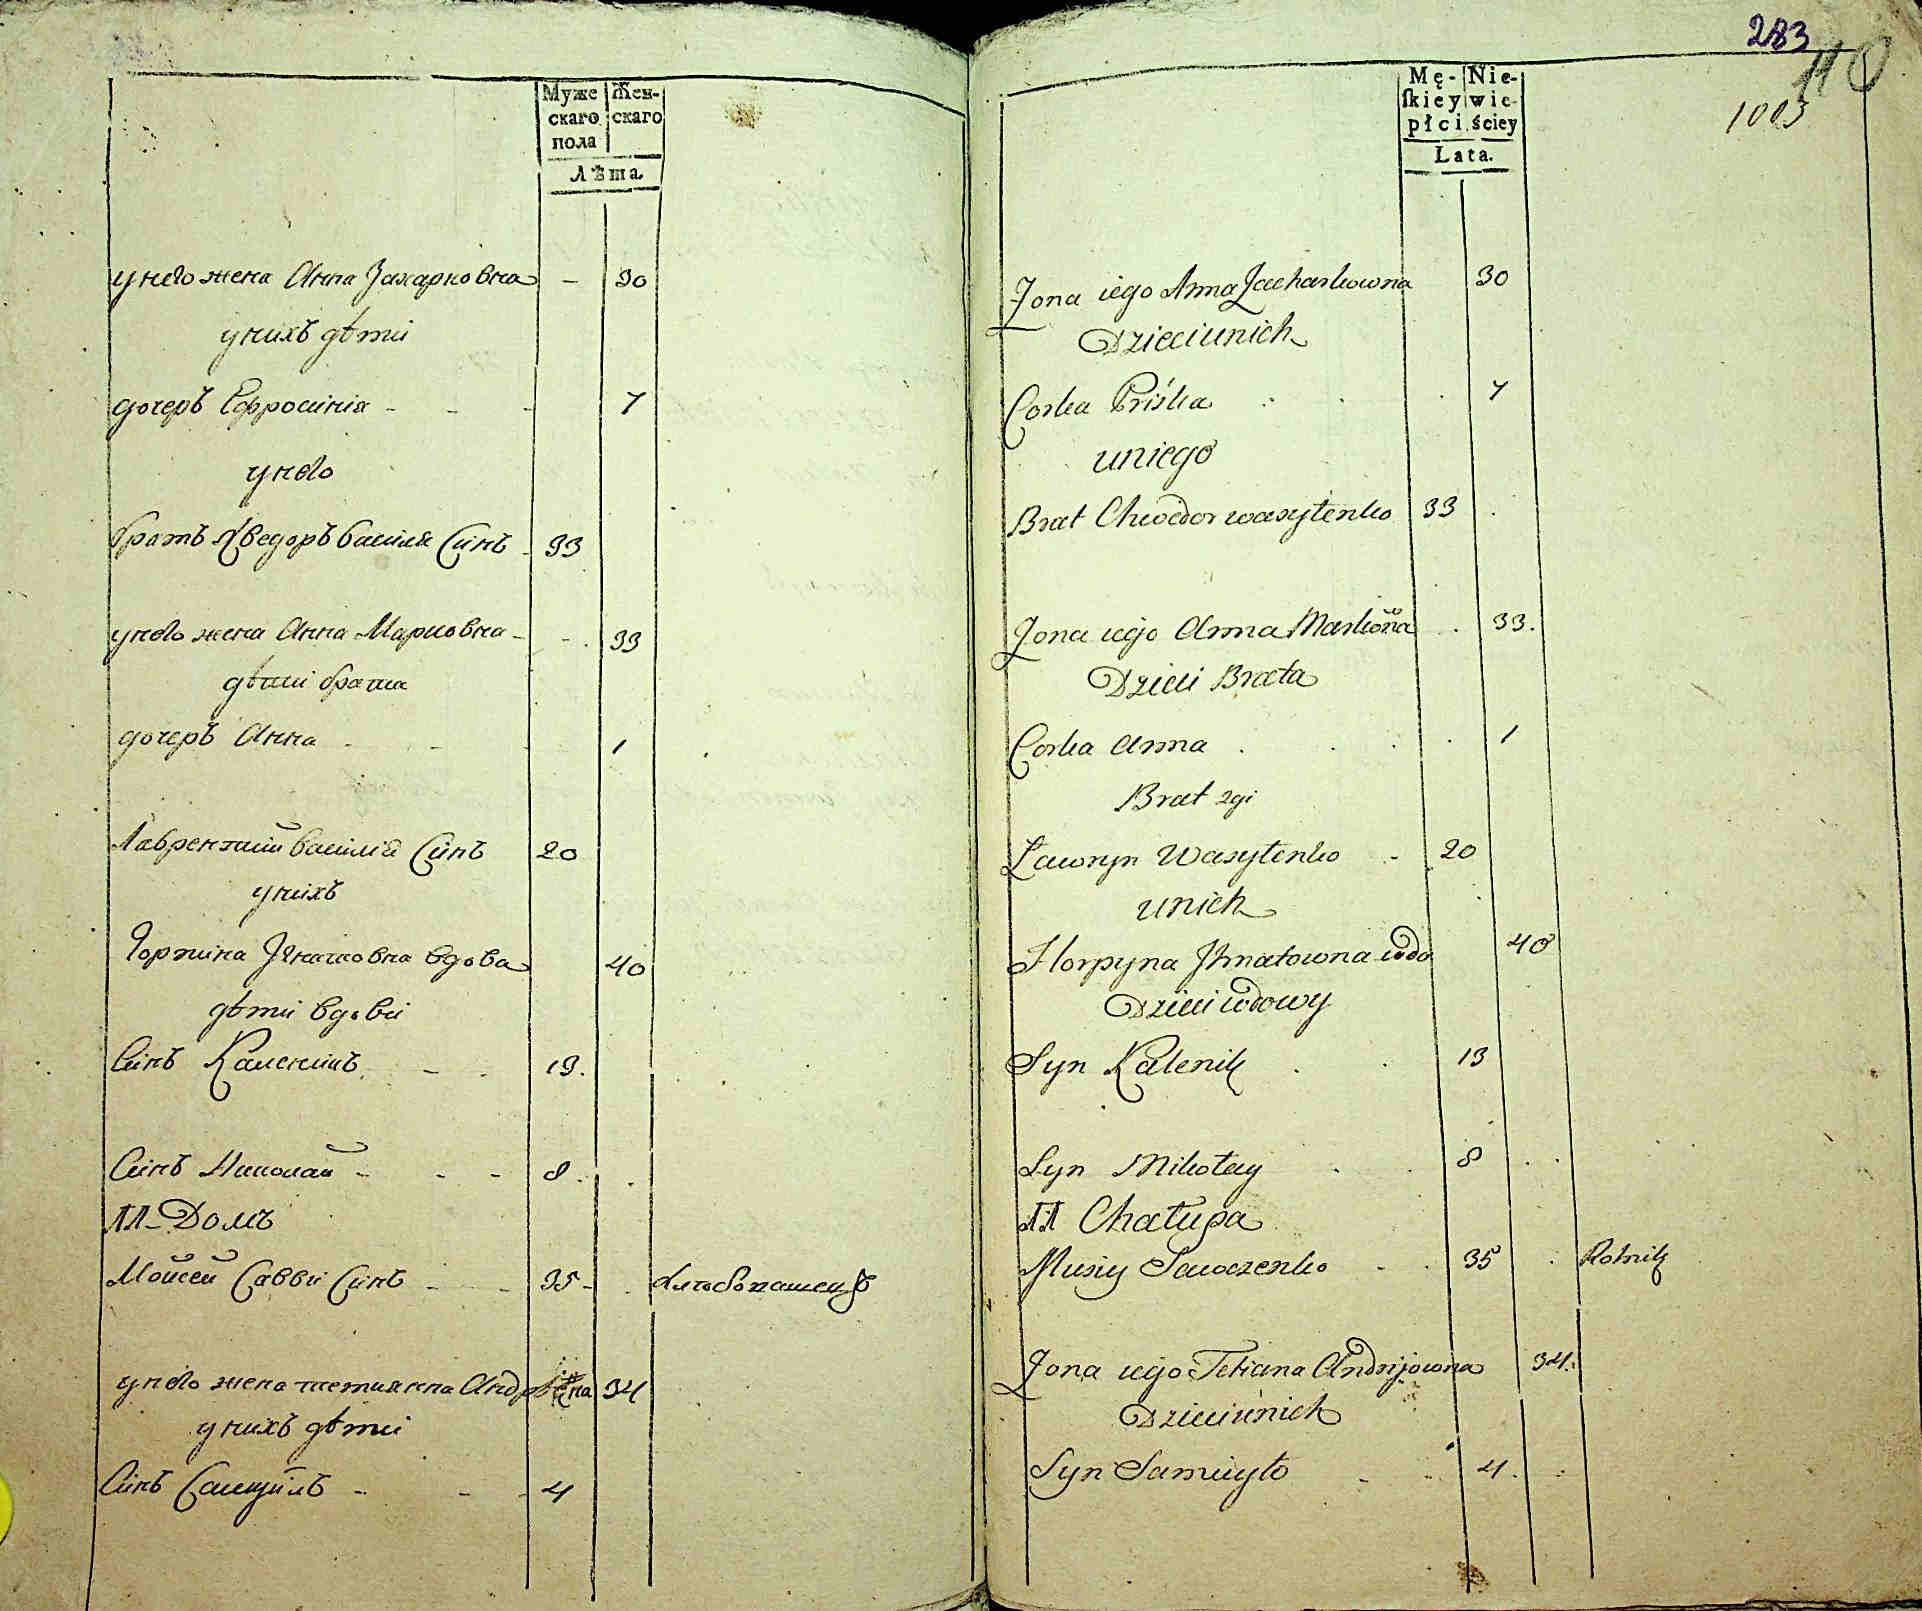 Муже Жен-
скаго скаго
пола
Лѣта.
унего жена Анна Захарковна - 30
унихъ дѣти
дочеръ Ефросинія - - - 7
унего
братъ Хведоръ василія Синъ - 33
унего жена Анна Марковна - - 33
дѣти брата
дочеръ Анна - - - 1
Лаврентій василія Синъ 20
унихъ
Горпина Игнатовна вдова 40
дѣти вдови
Синъ Каленикъ - - 19.
Синъ Николай - - - 8.
11-Домъ
Мойсей Саввы Синъ - - 35 - хлебопашецъ
унего жена тетиянна Андреевна 34
унихъ дѣти
Синъ Самуйлъ - - - 4
283
110
1003
Mę- Nie-
ſkiey wie-
płci ściey
Lata.
Zona iego Anna Zacharkowna 30
Dzieci unich
Corka Priśka 7
uniego
Brat Chwedor wasylenko 33
Zona iego Anna Markowna 33.
Dzieci Brata
Corka Anna 1
Brat 2gi
Ławryn Wasylenko - 20
unich
Horpyna Ihnatowna wdo 40
Dzieci wdowy
Syn Kalenik 19
Syn Mikołay 8
11 Chałupa
Musiy Sawczenko - 35 Rolnik
Zona iego Tetiana Andryjowna 34.
Dzieci unich
Syn Samuyło - 4.